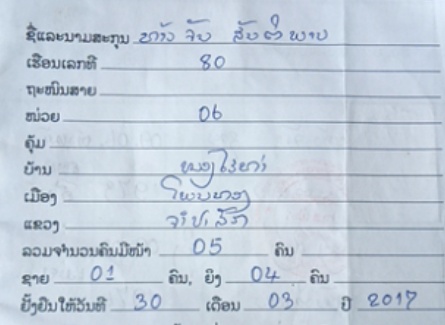 ຊື່ແລະນາມສະກຸນ ທ້າວ ຈັບ ສັບຄຳພາບ
ເຮືອນເລກທີ 80
ຖະໜົນສາຍ
ໜ່ວຍ 06
ຄຸ້ມ
ບ້ານ ໜອງໄຮທ່າ
ເມືອງ ໂພນທອງ
ແຂວງ ຈຳປາສັກ
ລວມຈຳນວນຄົນມີໜ້າ 05 ຄົນ
ຊາຍ 01 ຄົນ, ຍິງ 04 ຄົນ
ຢັ້ງຢືນໃຫ້ວັນທີ 30 ເດືອນ 03 ປີ 2017